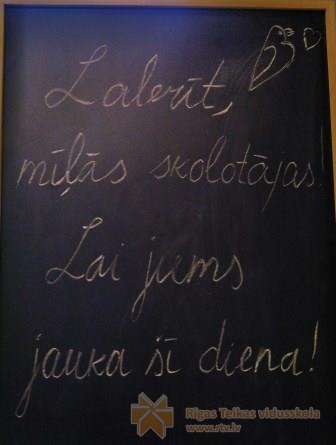 Labrīt,
mīļās skolotājas!
Lai jums
jauka šī diena!
Rīgas Teikas vidusskola
www.rtv.lv